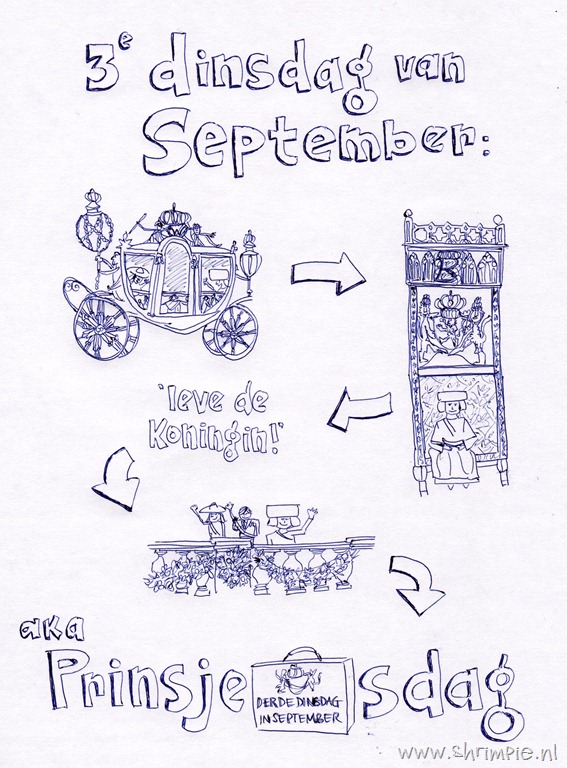 3e dinsdag van
September:
B
'leve de
Koningin!'
aka
Prinsje sdag
DERDE DINSDAG
IN SEPTEMBER
www.shrimpie.nl